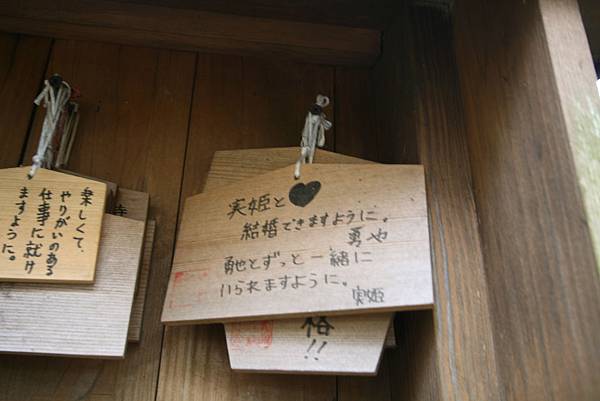 楽しくて、
やりがいのある
仕事に就け
ますように。
実姫と♥
結婚できますように。
勇也
勇也とずっと一緒に
いられますように。
実姫
格
!!